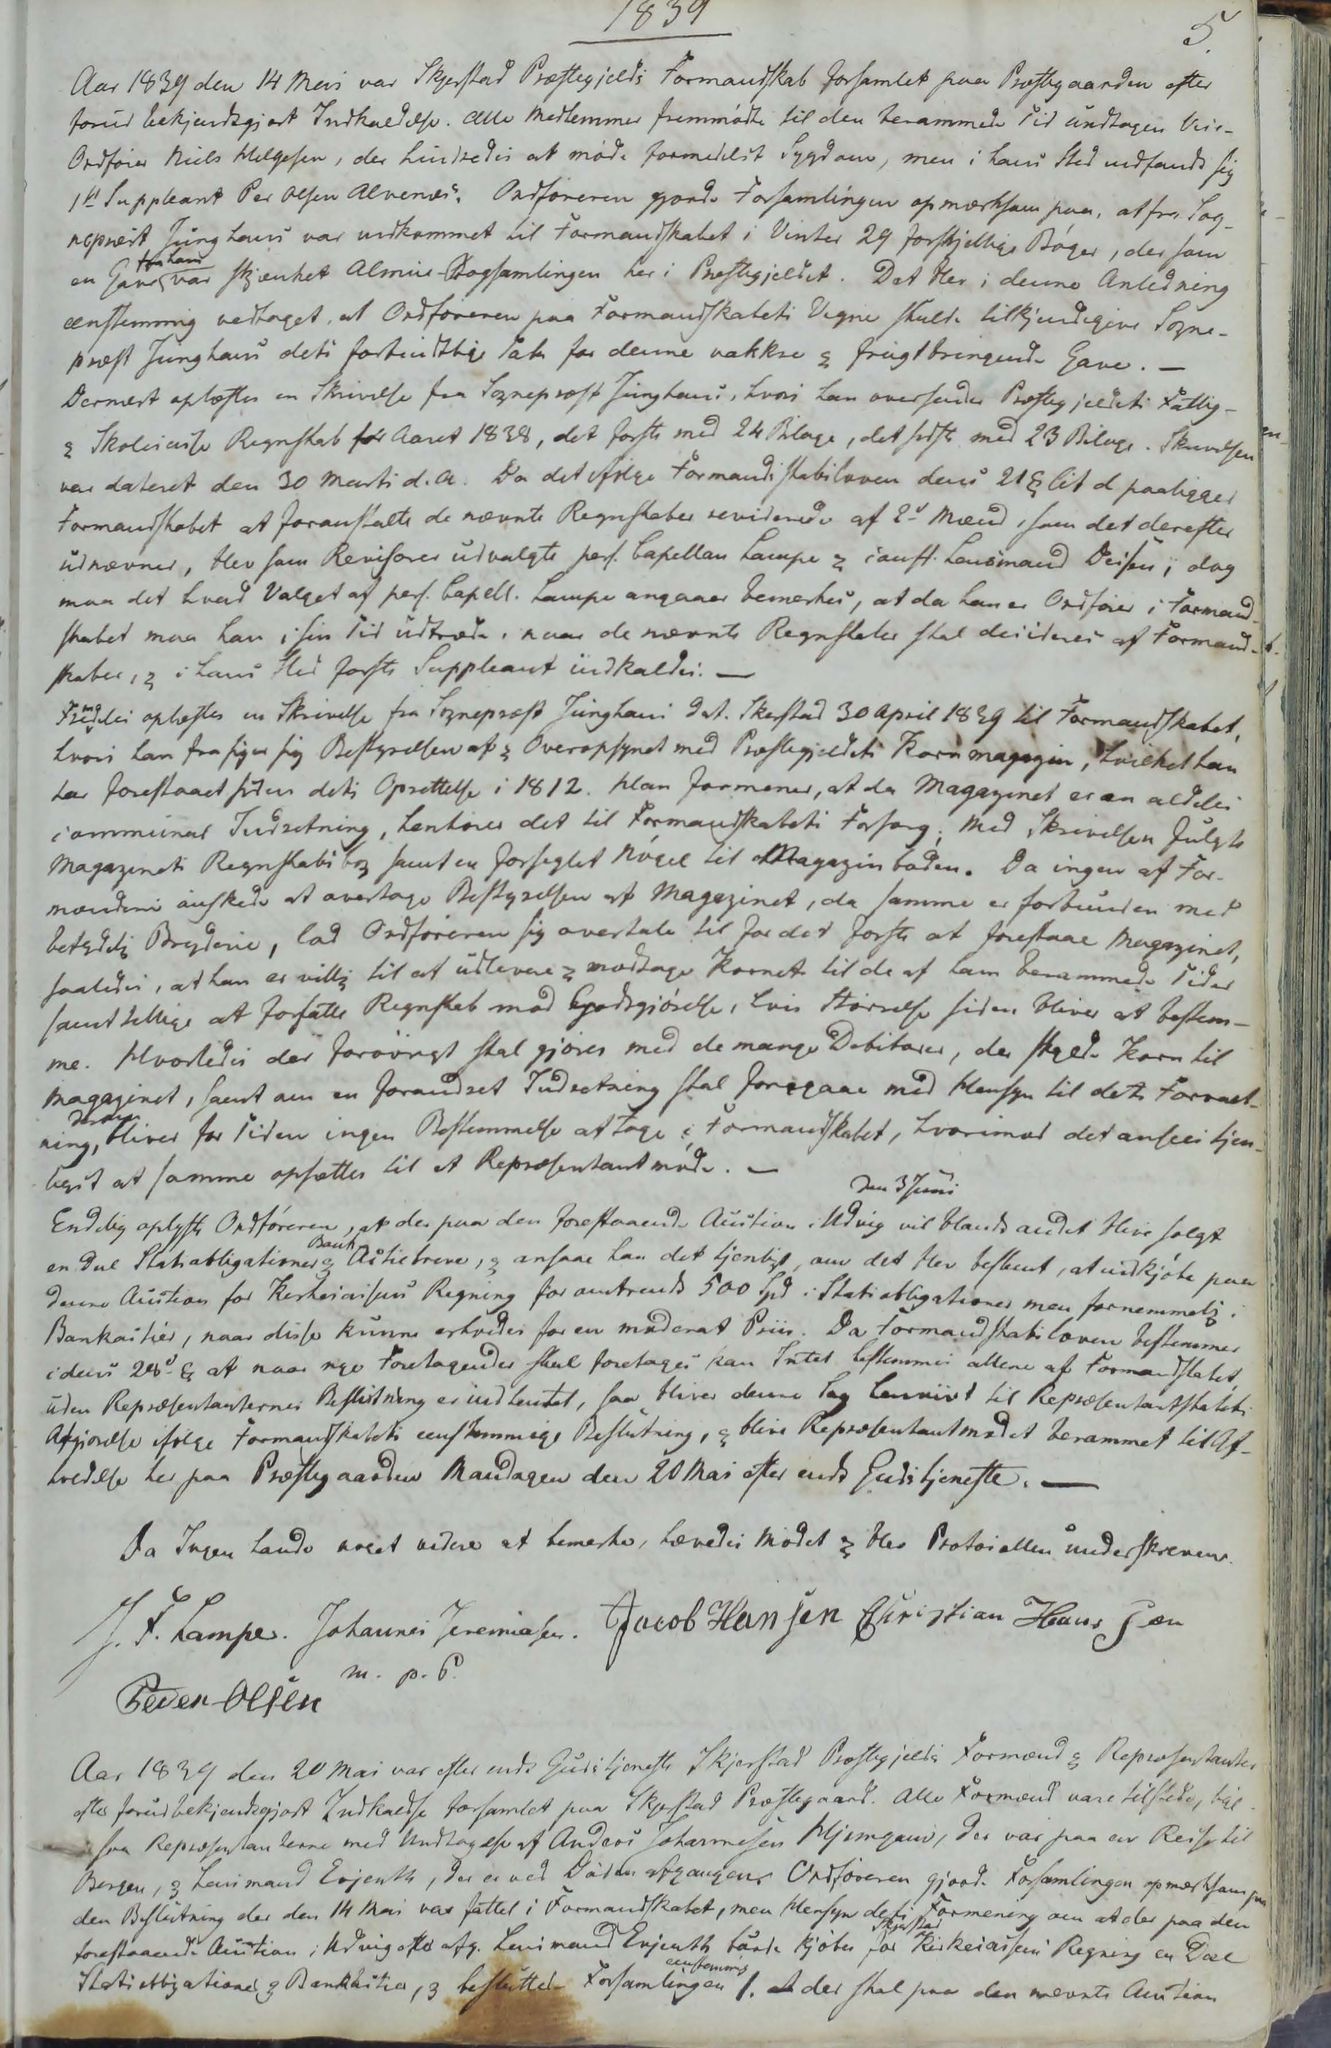 1839
5.
Aar 1839 den 14 Mai var Skjerstad Præstegjelds Formandskab forsamlet paa Præstegaarden efter
forud bekjendtgjort Indkaldelse. Alle Medlemmer fremmødte til den berammede Tid undtagen Vice-
Ordfører Niels Helgesen, der hindredes at møde formedelst Sygdom, men i hans Sted indfandt sig
1ste Suppleant Per Olsen Alvenæs. Ordføreren gjorde Forsamlingen opmærksom paa, at fra Sog-
nepræst Junghans var indkommet til Formandskabet i Vinter 29 forskjellige Bøger, der som
en Gave fra ham var skjenket Almue-Bogsamlingen her i Præstegjeldet. Det blev i denne Anledning
eenstemmig vedtaget, at Ordføreren paa Formandskabets Vegne skulde tilkjendegive Sogne-
præst Junghans dets forbindtlige Tak for denne vakkre & frugtbringende Gave. —
Dernæst oplæstes en Skrivelse fra Sognepræst Junghans, hvori han oversender Præstegjeldets Fattig-
& Skolecasse Regnskab for Aaret 1838, det første med 24 Bilage, det sidste med 23 Bilage. Skrivelsen
var dateret den 30 Marti d. A. Da det ifølge Formandskabsloven dens 21 § lit d paaligger
Formandskabet at foranstalte de nævnte Regnskaber reviderede af 2de Mænd, som det derefter
udnævner, blev som Revisorer udvalgte pers. Capellan Lampe & const. Lensmand Deisen; dog
maa det hvad Valget af pers. Capell. Lampe angaaer bemerkes, at da han er Ordfører i Formand-
skabet maa han i sin Tid udtræde, naar de nævnte Regnskaber skal decideres af Formand-
skabet, & i hans Sted første Suppleant indkaldes. —
Fremdeles oplæstes en Skrivelse fra Sognepræst Junghans dat. Skerstad 30 April 1839 til Formandskabet,
hvori han frasiger sig Bestyrelsen af & Overopsynet med Præstegjeldets Kornmagazin, hvilket han
har forestaaet siden dets Oprettelse i 1812. Han formener, at da Magazinet er en aldeles
communal Indretning, henhører det til Formandskabets Forsorg; Med Skrivelsen fulgte
Magazinets Regnskabsbog samt en forseglet Nøgel til Magazinboden. Da ingen af For-
mændene ønskede at overtage Bestyrelsen af Magazinet, da samme er forbunden med
betydelig Bryderie, lod Ordføreren sig overtale til for det første at forestaae Magazinet,
saaledes, at han er villig til at udlevere & modtage Kornet til de af ham berammede Tider
samt tillige at forfatte Regnskab mod Godtgjørelse, hvis Størrelse siden bliver at bestem-
me. Hvorledes der forøvrigt skal gjøres med de mange Debitorer, der skylde Korn til
Magazinet, samt om en forandret Indretning skal foregaae med Hensyn til dets Forvalt-
ning, derom bliver for Tiden ingen Bestemmelse at tage i Formandskabet, hvorimod det ansees tjen-
ligst at samme opsættes til et Repræsentantmøde. —
Endelig oplyste Ordføreren, at der paa den forestaaende Auction i Udvig den 3 Juni vil blandt andet blive solgt
en Deel Statsobligationer & Bank Actiebreve, & ansaae han det tjenligt, om det blev bestemt, at indkjøbe paa
denne Auction for Kirkecassens Regning for omtrendt 500 Spd i Statsobligationer men fornemmelig i
Bankactier, naar disse kunne erholdes for en moderat Priis. Da Formandskabsloven bestemmer
i dens 28de § at naar nye Foretagender skal foretages kan Intet bestemmes allene af Formandskabet,
uden Repræsentanternes Beslutning er indhentet, saa bliver denne Sag henviist til Repræsentantskabets
Afgjørelse ifølge Formandskabets eenstemmige Beslutning, & blive Repræsentantmødet berammet til Af-
holdelse her paa Præstegaarden Mandagen den 20 Mai efter endt Gudstjeneste. —
Da Ingen havde noget videre at bemerke, hævedes Mødet & blev Protocollen underskreven.
J. F. Lampe. Johannes Jeremiasen. Jacob Hansen Christian Hans Sæn
m. p. P.
Peder Olsen
Aar 1839 den 20 Mai var efter endt Gudstjeneste Skjerstad Præstegjelds Formænd & Repræsentanter
efter forud bekjendtgjort Indkaldelse forsamlet paa Skjerstad Præstegaard. Alle Formænd vare tilstede, lige-
saa Repræsentanterne med Undtagelse af Anders Johannesen Hjemgam, der var paa en Reise til
Bergen, & Lensmand Evjenth, der er ved Døden afgangen. Ordføreren gjorde Forsamlingen opmærksom paa
den Beslutning der den 14 Mai var fattet i Formandskabet, med Hensyn dets Formening om at der paa den
forestaaende Auction i Udvig efter afg. Lensmand Evjenth burde kjøbes for Skjerstad Kirkecasses Regning en Deel
Statsobligationer & Bankactier, & besluttede Forsamlingen eenstemmig 1. At der skal paa den nævnte Auction